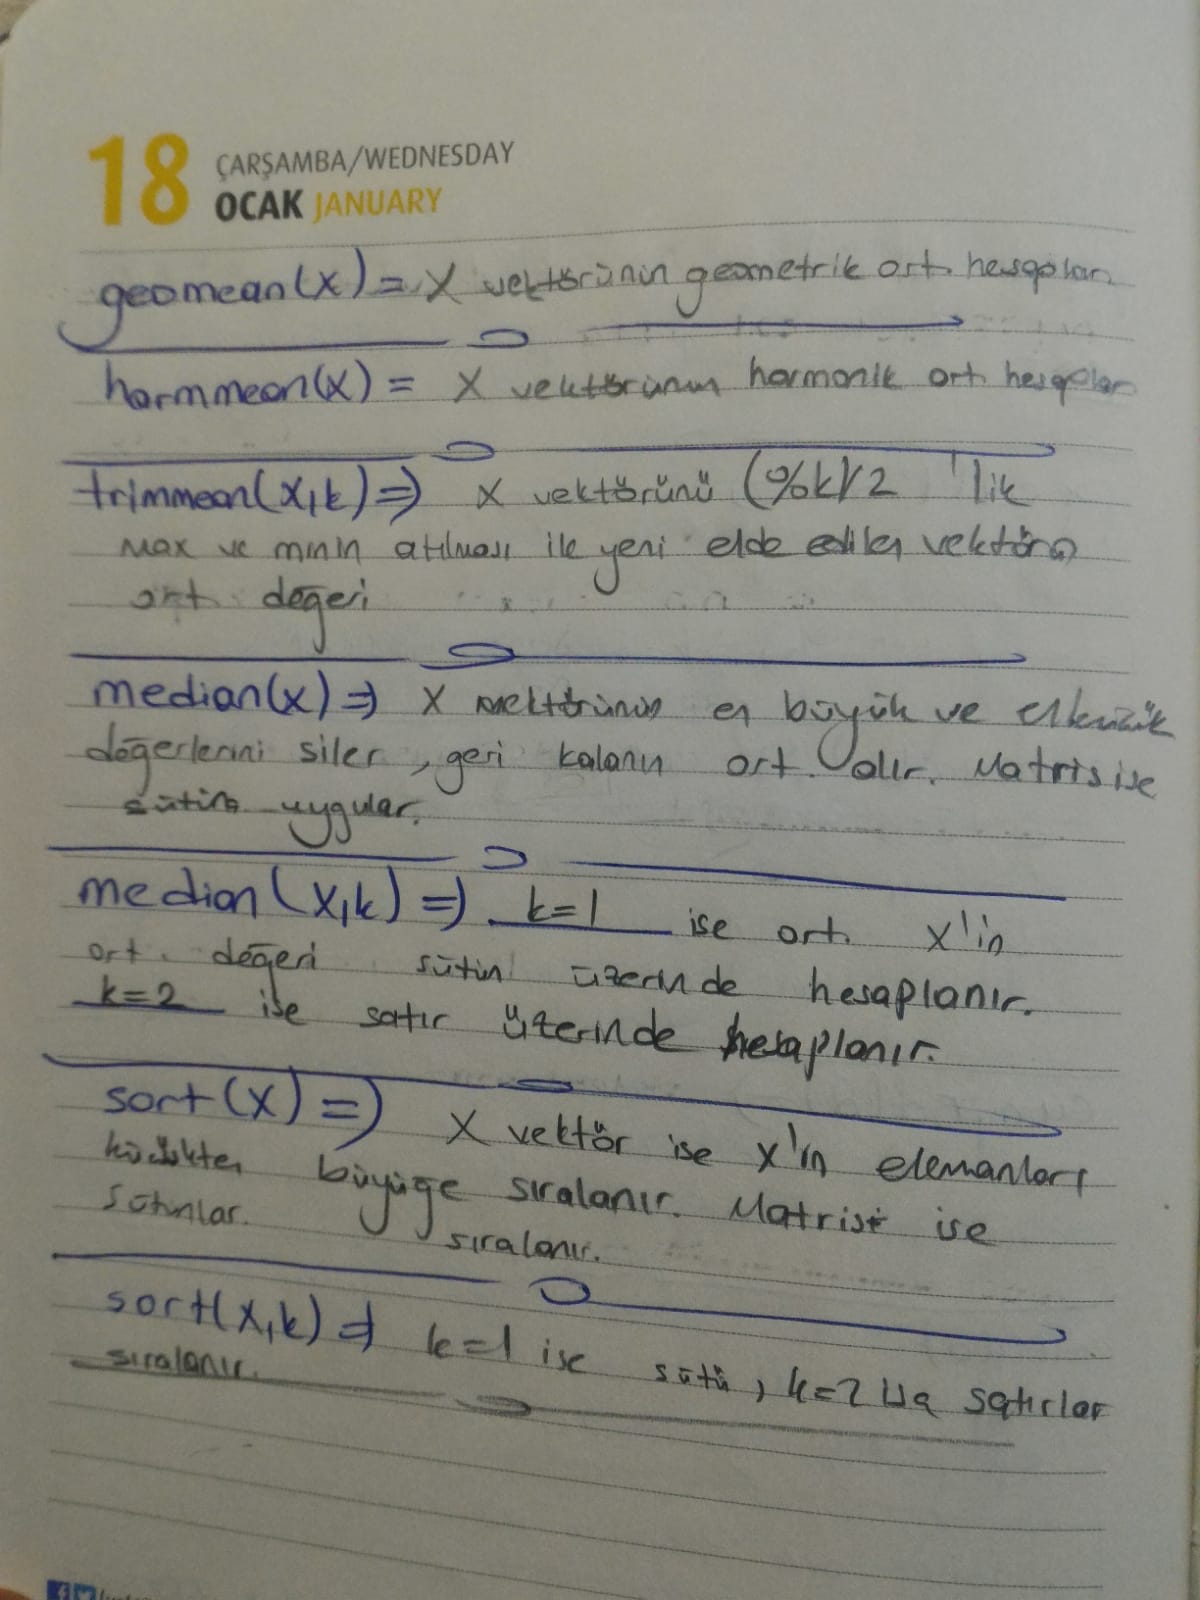 18 ÇARŞAMBA/WEDNESDAY
OCAK JANUARY
geomean(x) = X vektörünün geometrik ort. hesapları
harmmean(x) = X vektörünün harmonik ort. hesapları
trimmean(x,k) => X vektörünü (%k)/2 'lik
max ve minin atılması ile yeni elde edilen vektörün
ort. değeri
median(x) => X vektörünün en büyük ve en küçük
değerlerini siler, geri kalanın ort. alır. Matris ise
sütuna uygular.
median(x,k) => k=1 ise ort. x'in
ort. değeri sütun üzerinde hesaplanır.
k=2 ise satır üzerinde hesaplanır.
sort(x) => X vektör ise x'in elemanları
küçükten büyüğe sıralanır. Matrisi ise
sütunlar sıralanır.
sort(x,k) => k=1 ise sütü, k=2 satırlar
sıralanır.